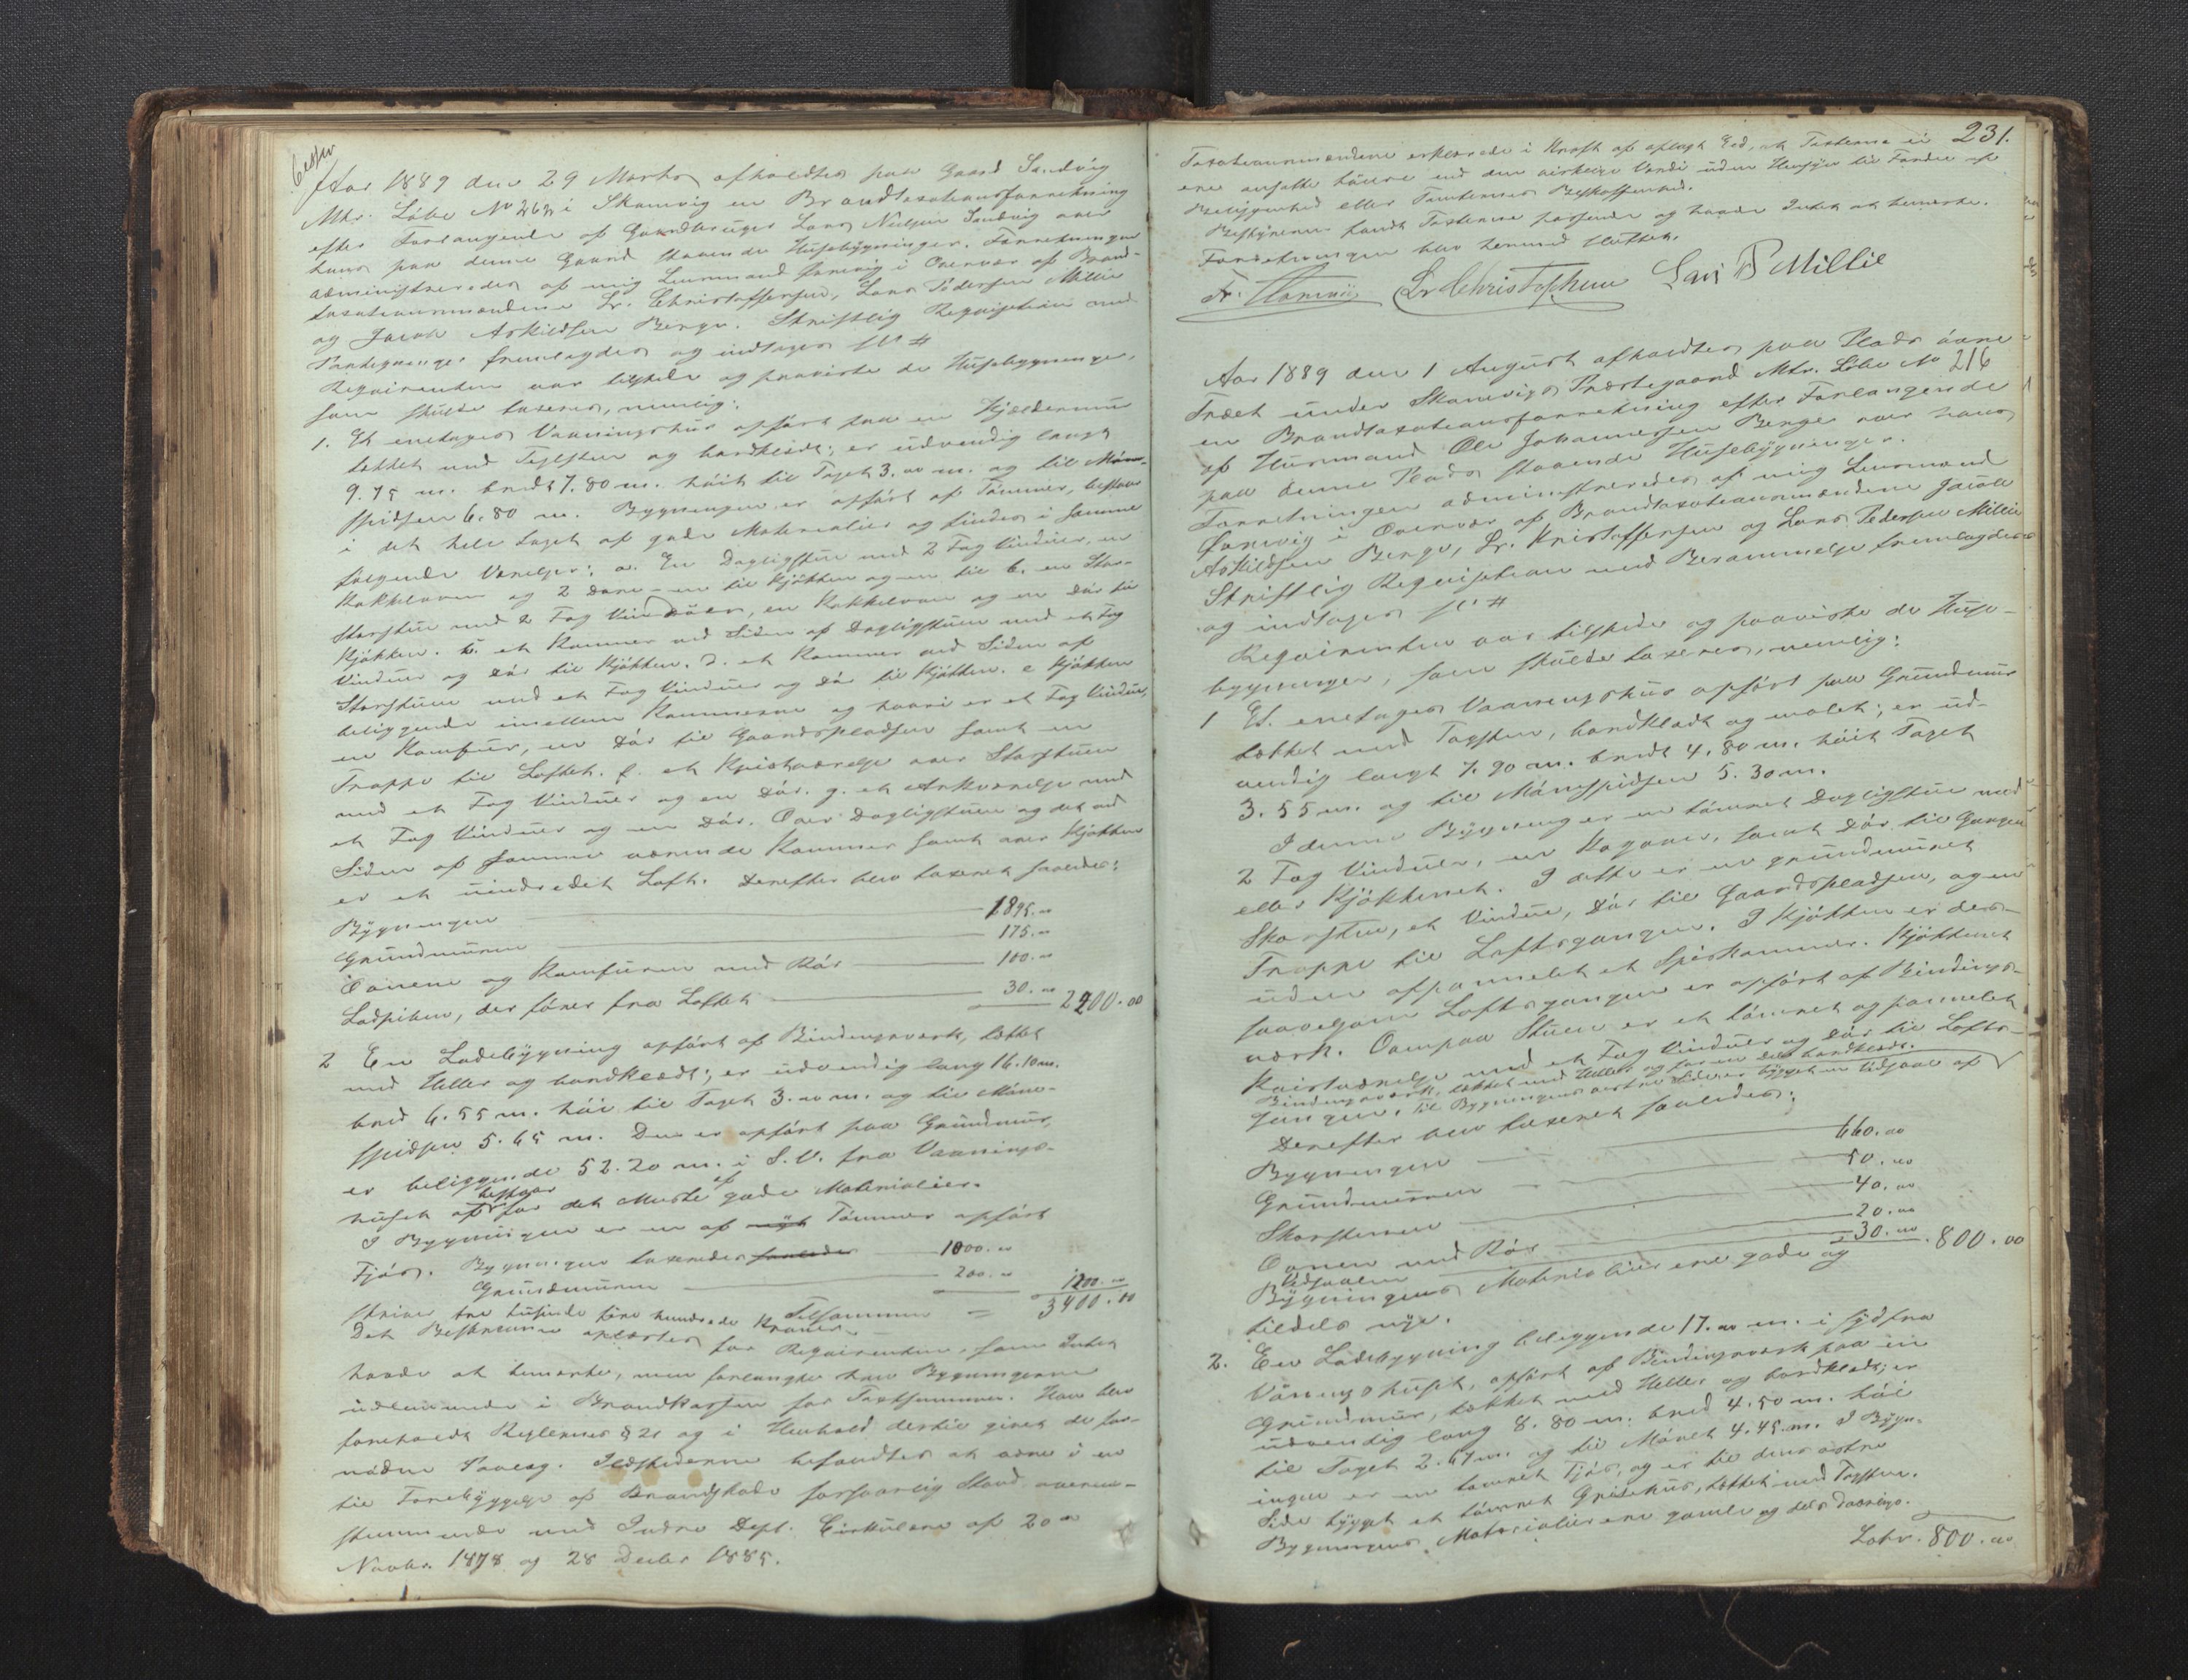 Aar 1889 den 29 Marts afholdtes paa Gaard Sandvig
Mtr. Løbe No 262 i Skanevig en Brandtaxationsforretning
efter Forlangende af Gaardbruger Lars Nielsen Sandvig over
hans paa denne Gaard staaende Husebygninger. Forretningen
administreredes af mig Lensmand Fanevig i Overvær af Brand-
taxationsmændene Lr. Christoffersen, Lars Pedersen Millie
og Jacob Askildsen Berge. Skriftlig Reqvisition med
Paategninger fremlagdes og indtages sl. #
Reqvirenten var tilstede og paaviste de Husebygninger,
som skulde taxeres, nemlig:
1. Et enetages Vaaningshus opført paa en Kjældermuur
tækket med Teglsten og bordklædt; er udvendig langt
9.75 m. bredt 7.80 m. höit til Taget 3.00 m. og til Møns-
spidsen 6.80 m. Bygningen er opført af Tömmer, bestaar
i det hele taget af gode Materialier og findes i samme
følgende Værelser: a. En Dagligstue med 2 Fag Vinduer, en
Kakkelovn og 2 Døre - en til Kjøkken og en til b. en Stor-
Storstue med 2 Fag Vinduer, en Kakkelovn og en Dör til
Kjøkken. c. et Kammer ved Siden af Dagligstuen med et Fag
Vinduer og Dör til Kjøkken. d. et Kammer ved Siden af
Storstuen med et Fag Vinduer og Dör til Kjøkken. e Kjøkken
beliggende imellem Kammerne og hvori er et Fag Vinduer,
en Komfur, en Dör til Gaardspladsen samt en
Trappe til Loftet. f. et Kvistværelse over Storstuen
med et Fag Vinduer og en Dör. g. et Arkværelse med
et Fag Vinduer og en Dör. Over Dagligstuen og det ved
Siden af samme værende Kammer samt over Kjøkken
er et uindredet Loft. Derefter blev taxeret saaledes:
Bygningen 1895.00
Grundmuren 175.00
Ovnene og Komfuren med Rör 100.00
Ladpiben, der förer fra Loftet 30.00 2200.00
2 En Ladebygning opført af Bindingsværk, tækket
med Heller og bordklædt; er udvendig lang 16.10 m.
bred 6.55 m. höi til Taget 3.00 m. og til Møns-
spidsen 5.65 m. Den er opført paa Grundmur,
er beliggende 52.20 m. i S.V. fra Vaanings-
huset bestaar for det Meste af gode Materialier.
I Bygningen er en af nyt Tömmer opført
Fjös. Bygningen taxeredes saaledes 1000.00
Grundmuren 200.00 1200.00
skriver tre tusinde fire hundrede Kroner. Tilsammen = 3400.00
Det Beskrevne oplæstes for Reqvirenten, som Intet
havde at bemærke, men forlangte han Bygningerne
indlemmede i Brandkassen for Taxtsummen. Han blev
foreholdt Reglernes § 21 og i Henhold dertil givet de for-
nödne Paalæg. Ildstederne befandtes at være i en
til Forebyggelse af Brandskade forsvarlig Stand overens-
stemmende med Indre Dept. Cirkulære af 20de
Novbr. 1878 og 28 Decbr 1885.
231.
Taxationsmændene erklærede i Kraft af aflagt Eed, at Taxterne ei
ere ansatte höiere end den virkelige Værdi uden Hensyn til Fordele af
Beliggenhed eller Tomternes Beskaffenhed.
Bestyreren fandt Taxterne passende og havde Intet at bemærke.
Forretningen blev hermed sluttet.
Lr Christophersen Lars P Millie
Aar 1889 den 1 August afholdtes paa Plads övre
Træet under Skanevigs Præstegaard Mtr. Løbe No 216
en Brandtaxationsforretning efter Forlangende
af Husmand Ole Johannessen Berge over hans
paa denne Plads staaende Husebygninger.
Forretningen administreredes af mig Lensmand
Fanevig i Overvær af Brandtaxationsmændene Jacob
Askildsen Berge, Lr. Kristoffersen og Lars Pedersen Millie
Skriftlig Reqvisition med Berammelse fremlagdes
og indtages sl. #
Reqvirenten var tilstede og paaviste de Huse-
bygninger, som skulde taxeres, nemlig:
1 Et enetages Vaaningshus opført paa Grundmuur
tækket med Tagsten, bordklædt og malet; er ud-
vendig langt 7.90 m. bredt 4.80 m. höit Taget
3.55 m. og til Mönsspidsen 5.30 m.
I denne Bygning er en tömret Dagligstue med
2 Fag Vinduer, en Kogovn, samt Dör til Gangen
eller Kjøkkenet. I dette er en grundmuret
Skorsten, et Vindue, Dör til Gaardspladsen, og en
Trappe til Loftsgangen. I Kjøkken er des-
uden afpanelet et Spiskammer. Kjøkkenet
saavelsom Loftsgangen er opført af Bindings-
værk. Ovenpaa Stuen er et tömret og panelet
Kvistværelse med et Fag Vinduer og Dör til Lofts-
gangen. Til Bygningens vestre Side er bygget en Vedskaae af
Bindingsværk, tækket med Heller og for en Deel bordklædt.
Derefter blev taxeret saaledes:
Bygningen 660.00
Grundmuren 50.00
Skorstenen 40.00
Ovnen med Rör 20.00
Vedskaalen 30.00 800.00
Bygningens Materialier ere gode og
tildels nye.
2. En Ladebygning beliggende 17.00 m. i Syd fra
Vaaningshuset, opført af Bindingsværk paa en
Grundmur, tækket med Heller og bordklædt; er
udvendig lang 8.80 m. bred 4.50 m. höi
til Taget 2.67 m. og til Mönet 4.45 m. I Bygn-
ingen er en tömret Fjös, og er til dens østre
Side bygget et tömret Grisehus, tækket med Tagsten.
Bygningens Materialier ere gamle og dels daarlige.
Latr. 800.00